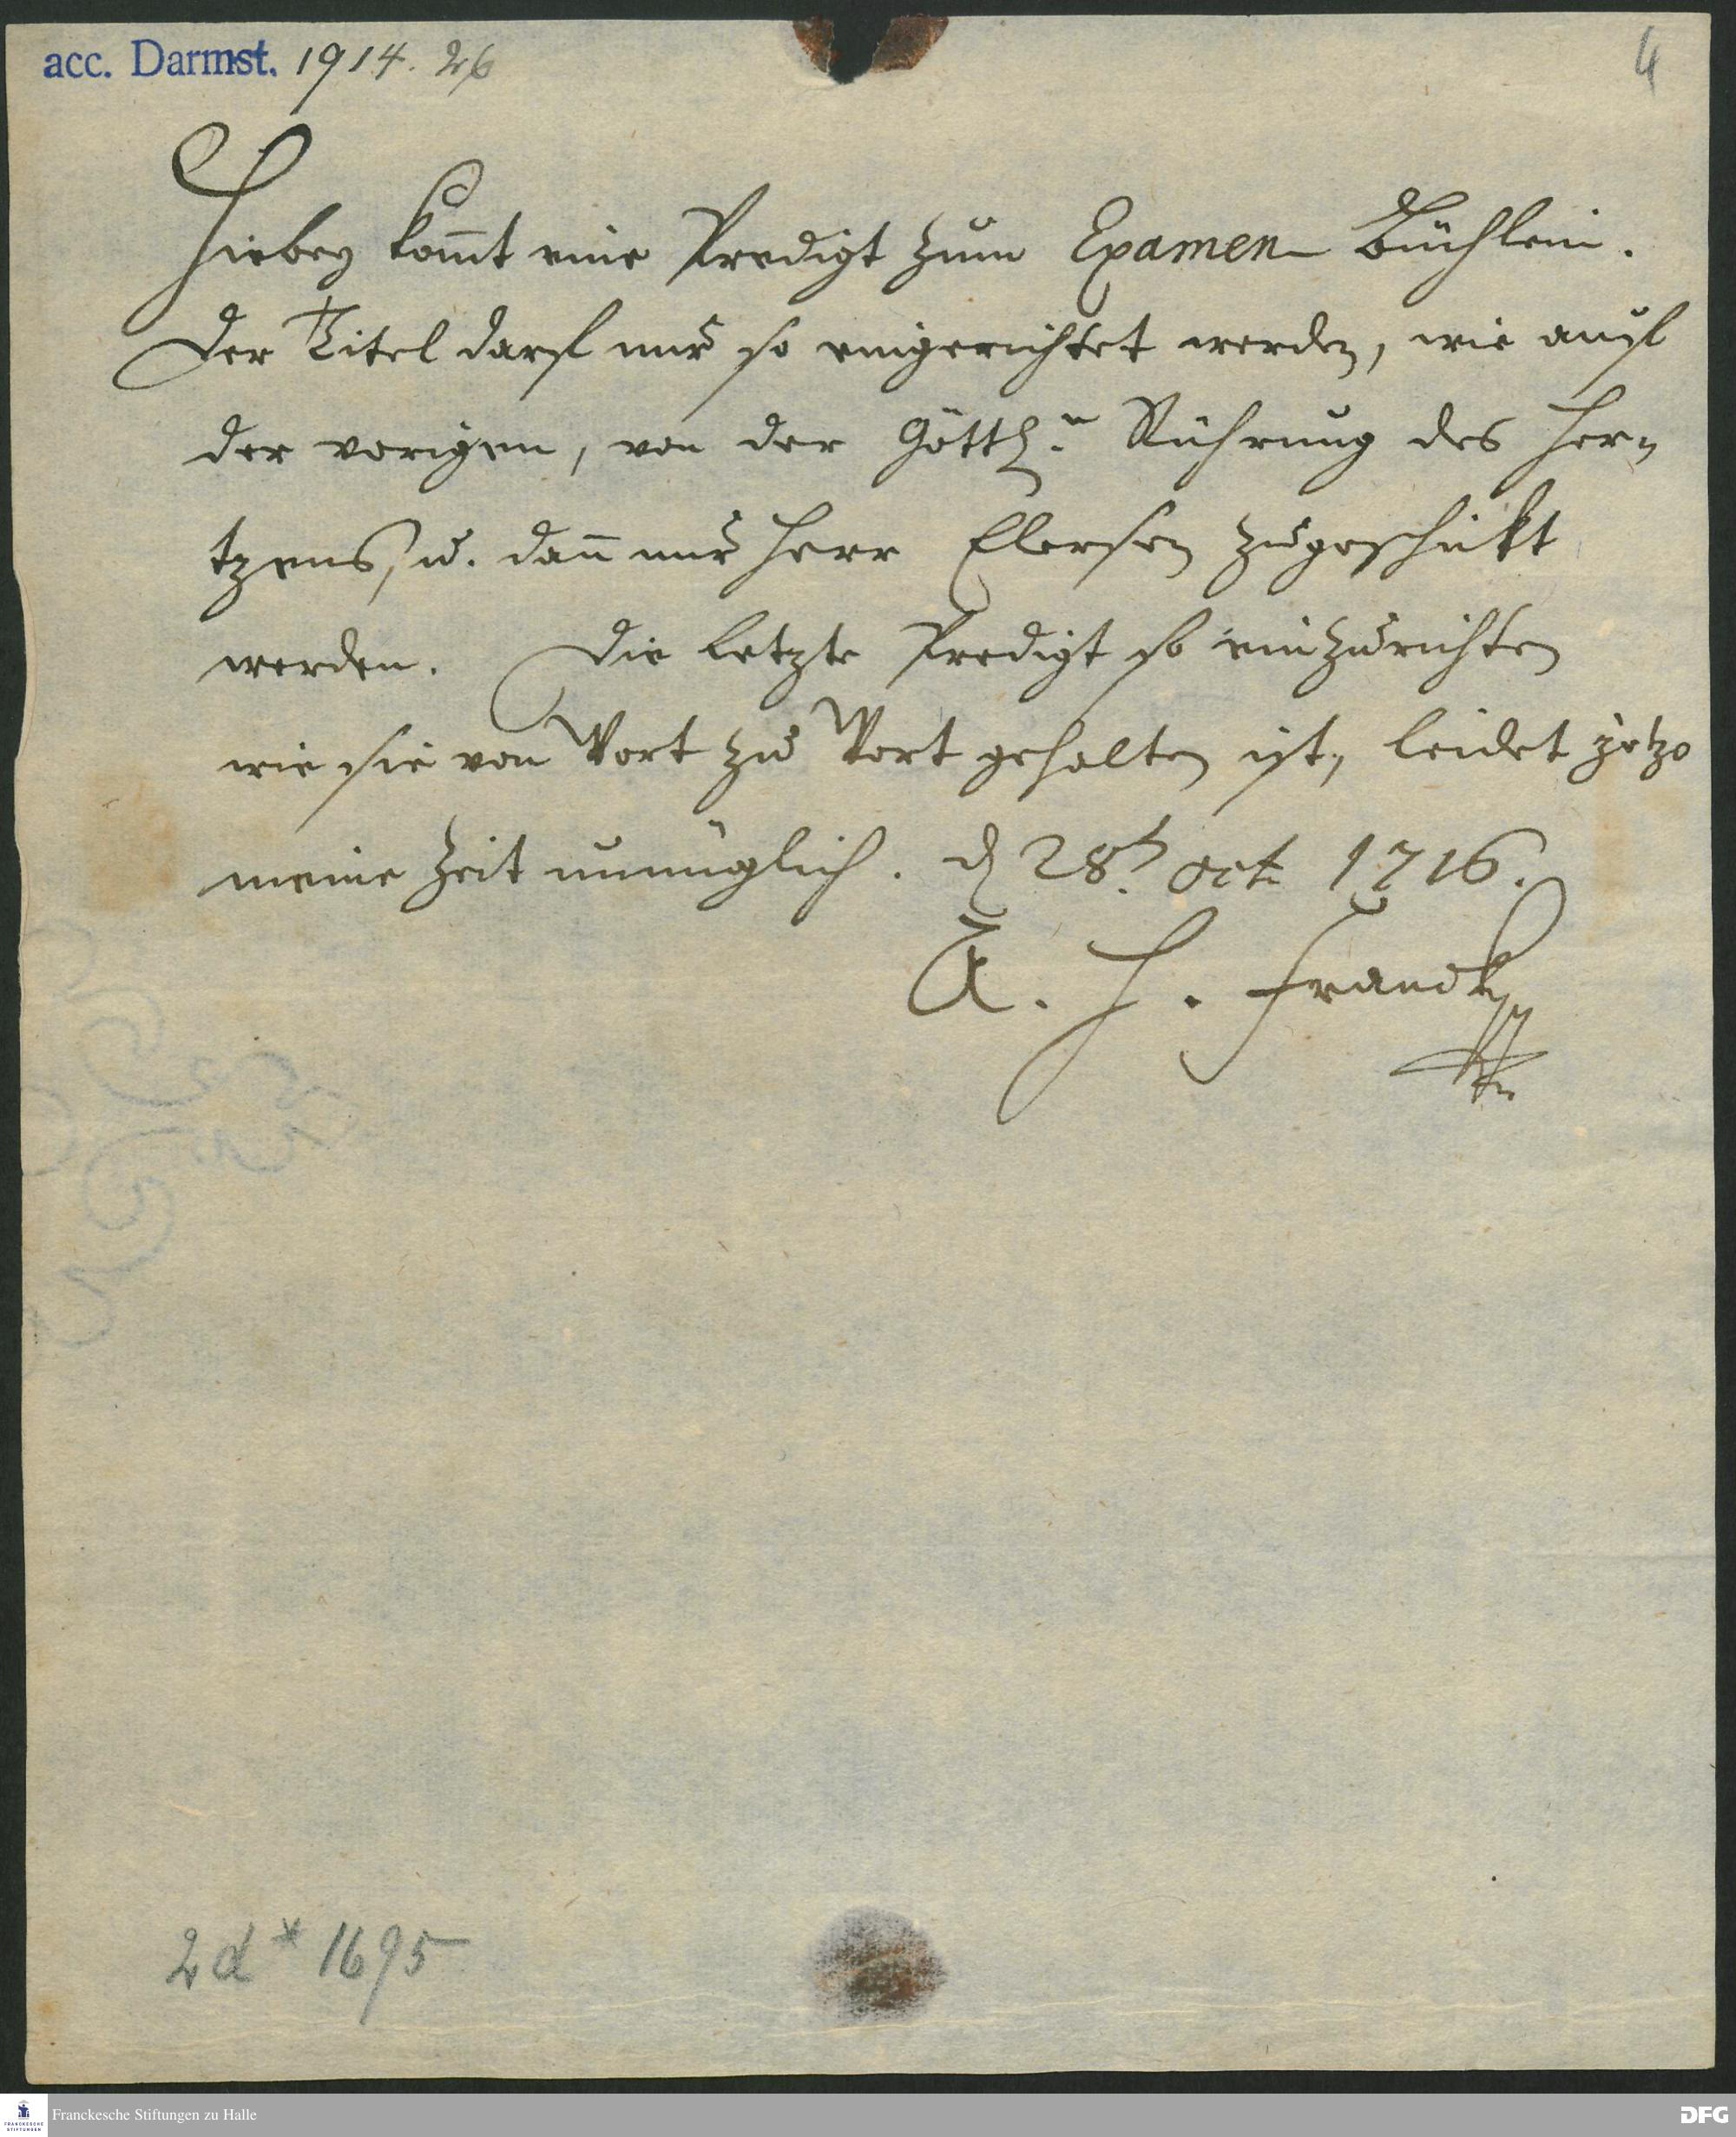 acc. Darmst. 1914. 26
4
Hiebey kom̄t eine Predigt zum Examen-Büchlein.
Der Titel darff nur so eingerichtet werden, wie auff
der vorigen, von der Göttl.n Rührung des Her-
tzens, u. dan̄ nur Herr Elersen zugeschickt
werden. Die letzte Predigt so einzurichten
wie sie von Wort zu Wort gehalten ist, leidet jetzo
meine Zeit unmüglich. d 28. Oct 1716.
A. H. Francke
2 d * 1695
FRANCKESCHE STIFTUNGEN
Franckesche Stiftungen zu Halle
DFG